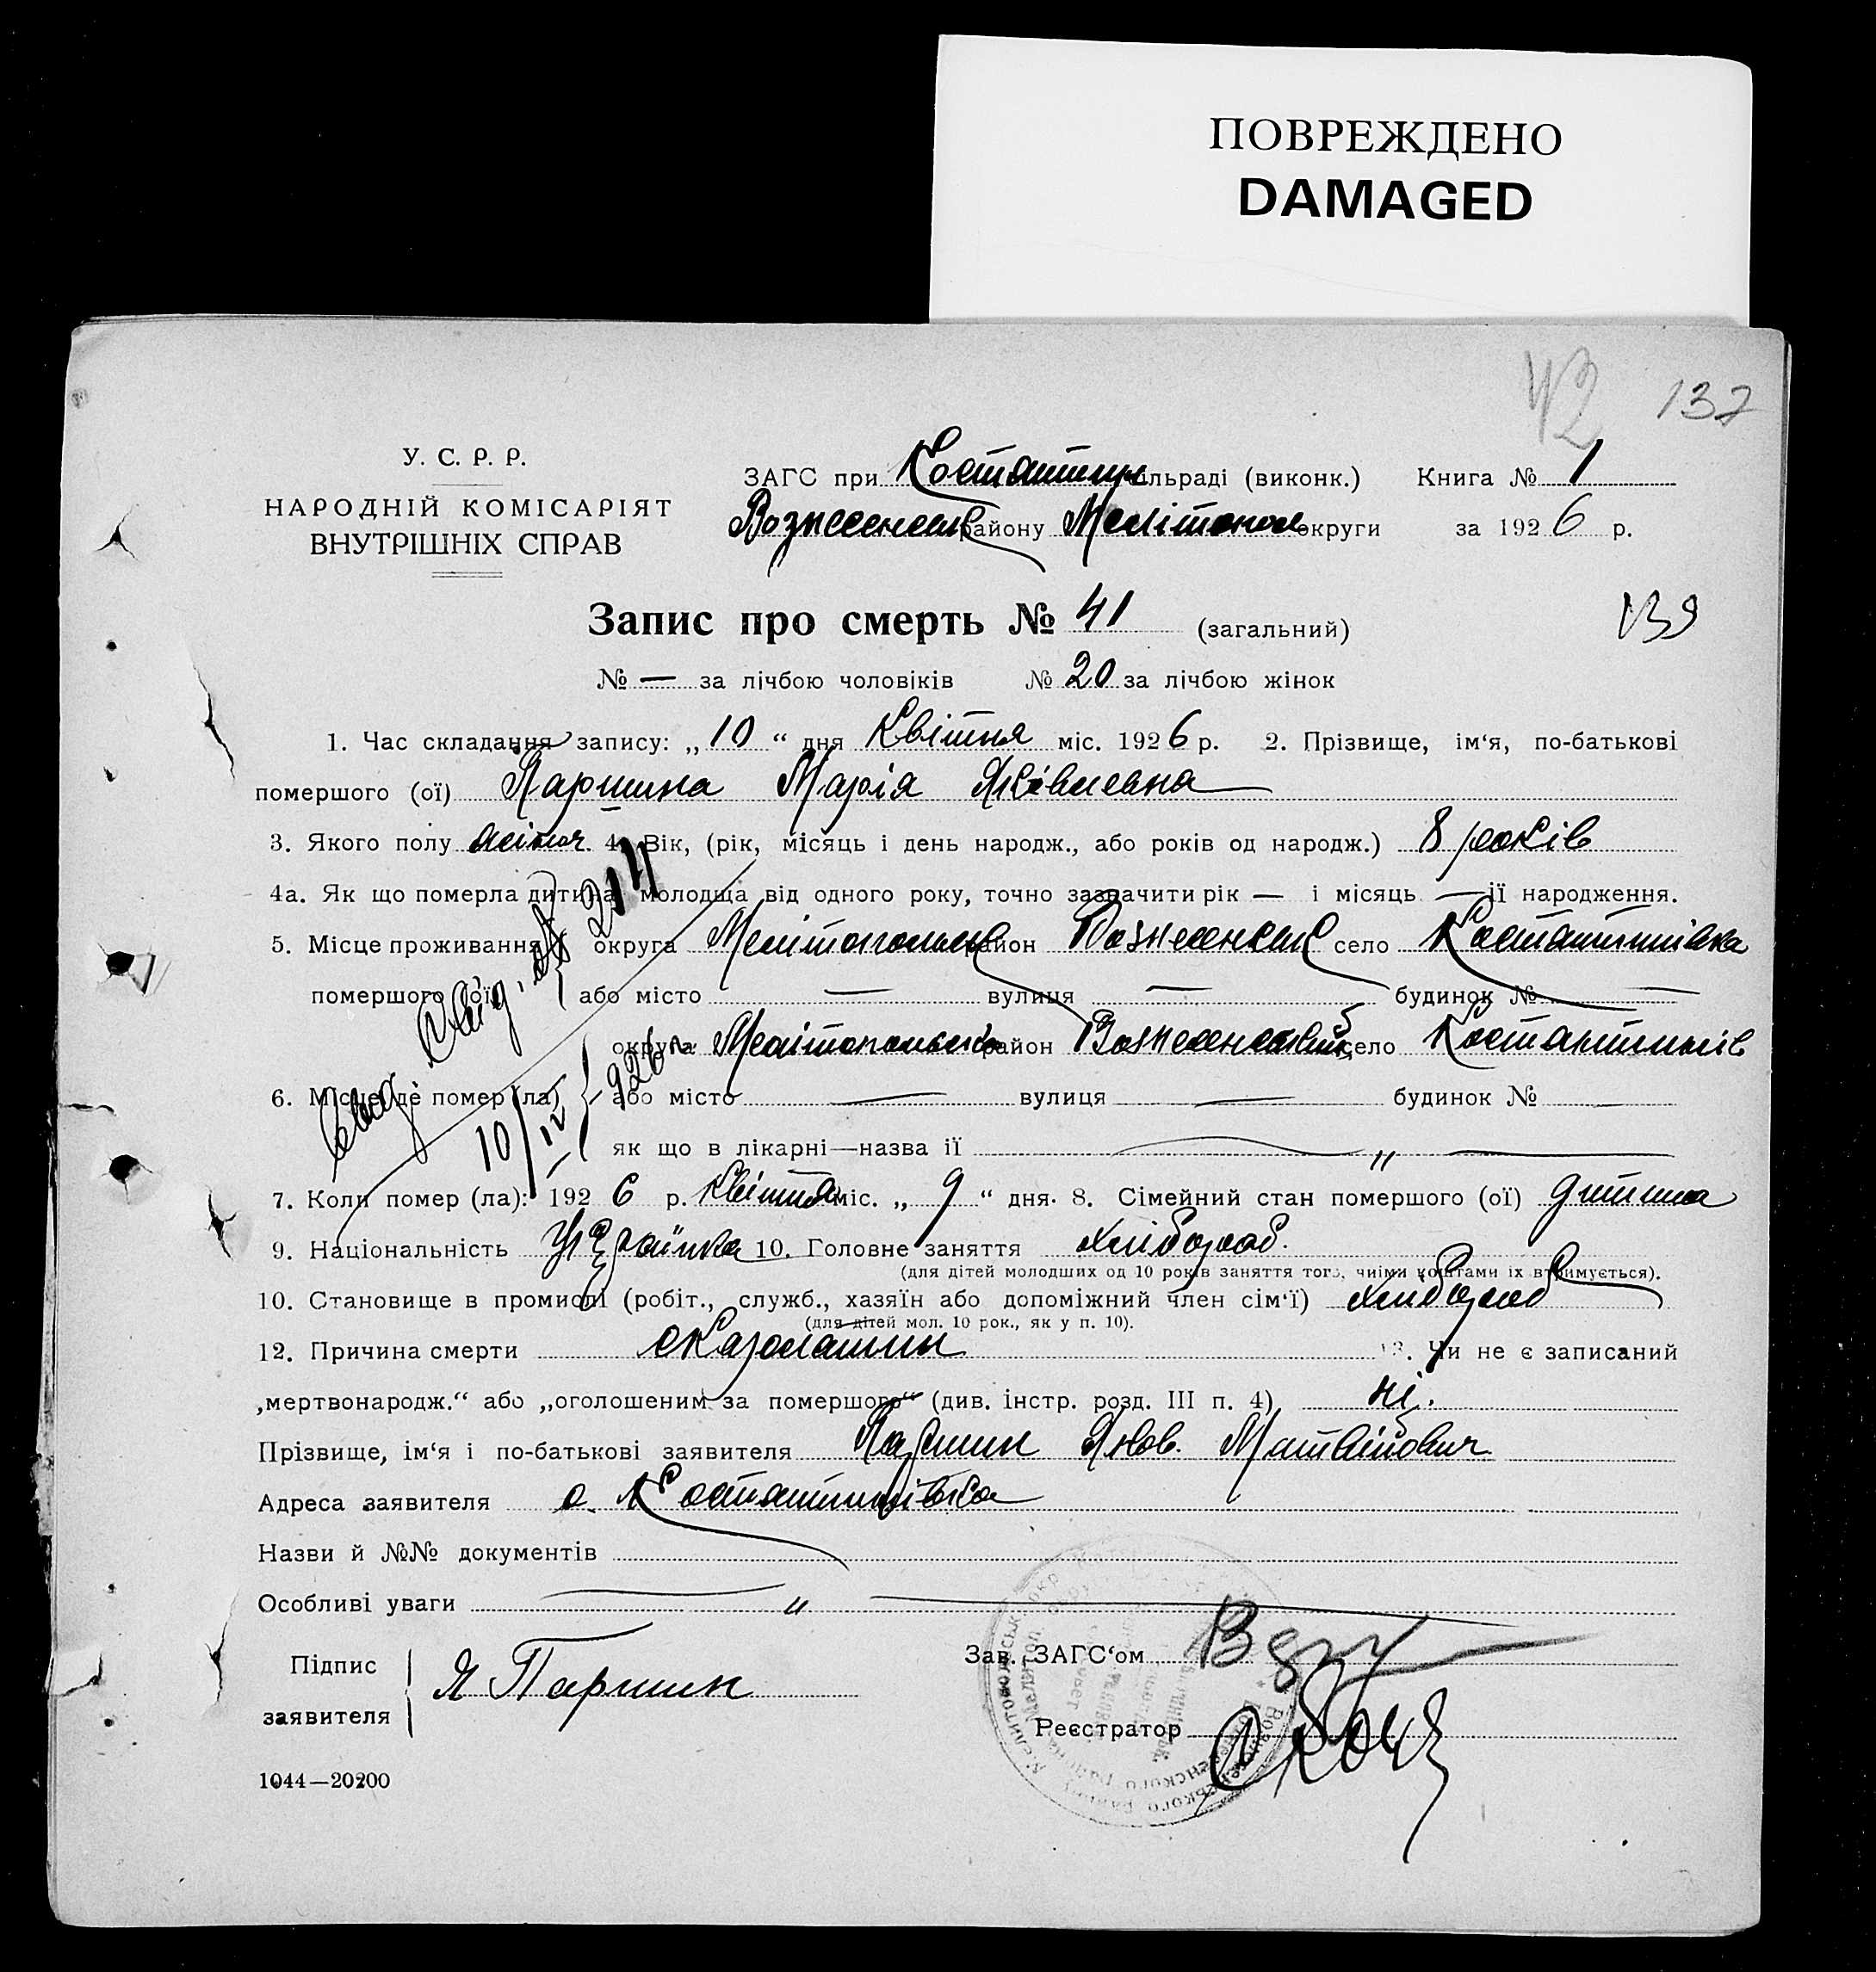 ПОВРЕЖДЕНО
DAMAGED
42 137
У. С. Р. Р.
НАРОДНІЙ КОМІСАРІЯТ
ВНУТРІШНІХ СПРАВ
ЗАГС при Костантин ільраді (виконк.) Книга № 1
Вознесенськ району Мелітопол округи за 1926 р.
Запис про смерть № 41 (загальний)
139
№ — за лічбою чоловіків № 20 за лічбою жінок
1. Час складання запису: „10“ дня Квітня міс. 1926 р. 2. Прізвище, ім‘я, по-батькові
помершого (ої) Паршина Марія Яківлевна
3. Якого полу жіноч. 4. Вік, (рік, місяць і день народж., або років од народж.) 8 років
4а. Як що померла дитина молодща від одного року, точно зазначити рік — і місяць — її народження.
5. Місце проживання округа Мелітопольськ район Вознесенськ село Костантинівка
помершого (ої) або місто — вулиця — будинок № —
округа Мелітопольська район Вознесенський село Костантинів
6. Місце де помер (ла) або місто — вулиця — будинок № —
як що в лікарні—назва її — „ —
7. Коли помер (ла): 1926 р. Квітня міс. „9“ дня. 8. Сімейний стан помершого (ої) дитина
9. Національність Українка 10. Головне заняття хлібороб.
(для дітей молодших од 10 років заняття того, чиїми коштами їх втримується).
10. Становище в промислі (робіт., служб., хазяїн або допоміжний член сім‘ї) хлібороб
(для дітей мол. 10 рок., як у п. 10).
12. Причина смерти скарлатин 13. Чи не є записаний
„мертвонародж.“ або „оголошеним за помершого“ (див. інстр. розд. III п. 4) ні.
Прізвище, ім‘я і по-батькові заявителя Паршин Яков. Матвійович
Адреса заявителя с. Костантинівка
Назви й №№ документів
Особливі уваги — „ —
Підпис
заявителя
Я Паршин
Зав. ЗАГС‘ом
Реєстратор
1044—20200